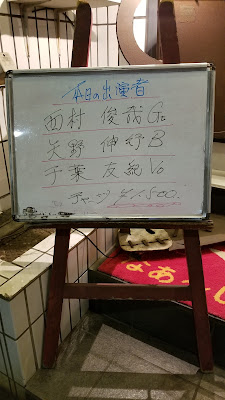 本日の出演者
西村 俊哉 G.
矢野 伸行 B
千葉 友紀 Vo
チャージ ¥1,800.
なぁ